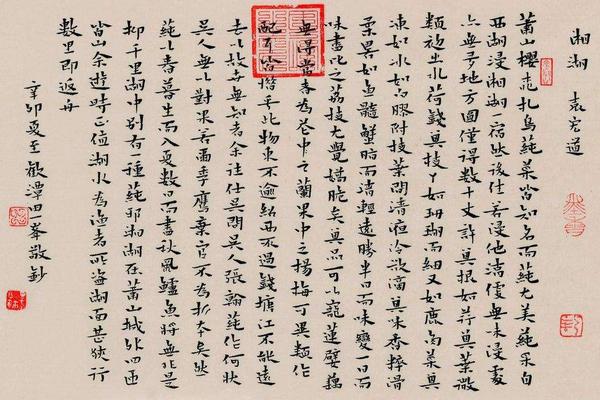 湘湖 袁宏道
蕭山櫻桃扎鳥蓴菜皆知名而蓴尤美蓴采自
西湖浸湘湖一宿然後佳若浸他湖便無味浸處
亦無多地方圓僅得數十丈許其根如荇其葉微
類初出水荷錢其枝丫如珊瑚而細又如鹿角菜其
凍如冰如白膠附枝葉間清液泠欲滴其味香粹滑
柔略如魚髓蟹脂而清輕遠勝半日而味變一日而
味盡比之荔枝尤覺嬌脆矣其品可以寵蓮嬖藕
無得當者為花中之蘭果中之楊梅可異類作
配耳皆惜乎此物東不逾紹西不過錢塘江不能遠
去以故世無知者余往仕吳問吳人張翰蓴作何狀
吳人無以對果若爾季鷹棄官不為折本矣然
蓴以春暮生而入夏數日而盡秋風鱸魚將無非是
抑千里湖中別有一種蓴耶湘湖在蕭山城外四匝
皆山余游時正值湖水為漁者所盜湖面甚狹行
數里即返舟
辛卯夏至歡潭田一峯敬鈔